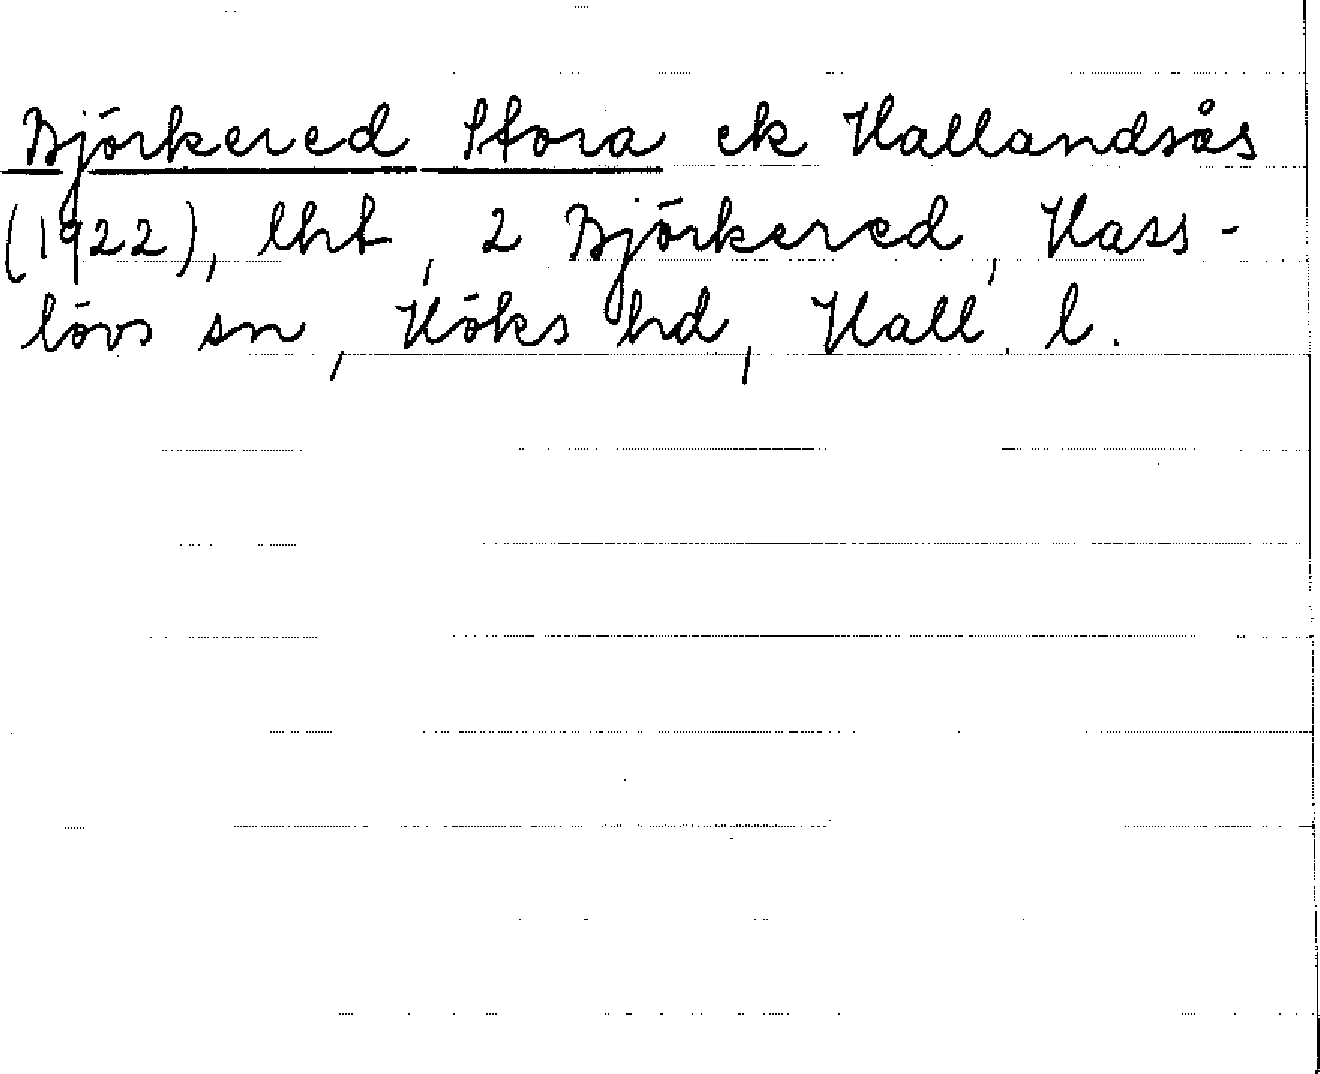 Björkered Stora ek Hallandsås
(1922), lht, 2 Björkered, Hass-
lövs sn, Höks hd, Hall. l.